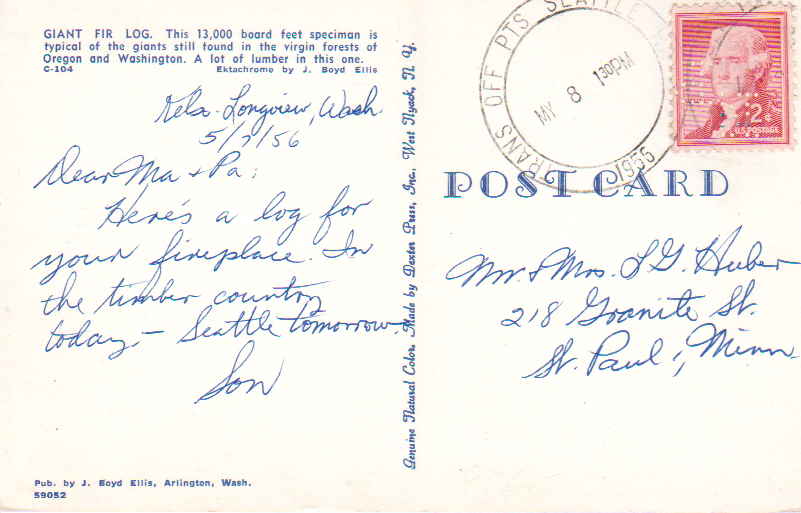 GIANT FIR LOG. This 13,000 board feet specimen is
typical of the giants still found in the virgin forests of
Oregon and Washington. A lot of lumber in this one.
C-104 Ektachrome by J. Boyd Ellis
Kelso-Longview, Wash.
5/7/56
Dear Ma & Pa:
Here's a log for
your fireplace. In
the timber country
today, — Seattle tomorrow
Son
Pub. by J. Boyd Ellis, Arlington, Wash.
59052
Genuine Natural Color, Made by Dexter Press, Inc., West Nyack, N. Y.
TRANS OFF PTS SEATTLE
MY 8 130PM
1956
2¢
U.S. POSTAGE
POST CARD
Mr. & Mrs. L G. Huber
218 Granite St.
St. Paul, Minn